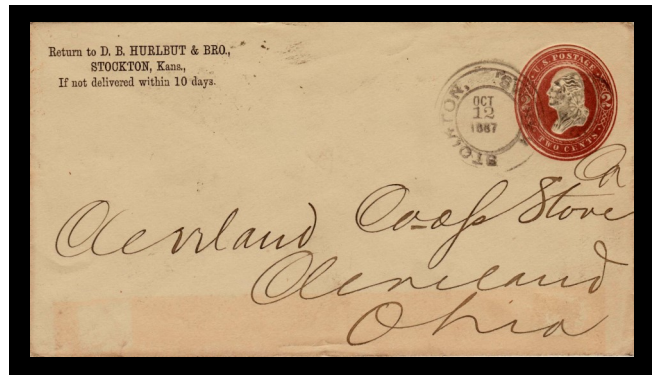 Return to D. B. HURLBUT & BRO.,
STOCKTON, Kans.,
If not delivered within 10 days.
STOCKTON,
OCT
12
1887
U.S. POSTAGE
TWO CENTS
Cleveland Co-op Stove Co
Cleveland
Ohio